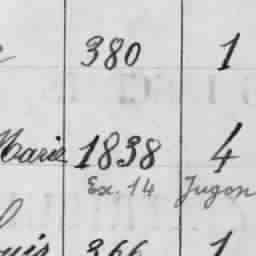 380 1
Marie 1838 4
Ex. 14 Jugon
ouis 366 1